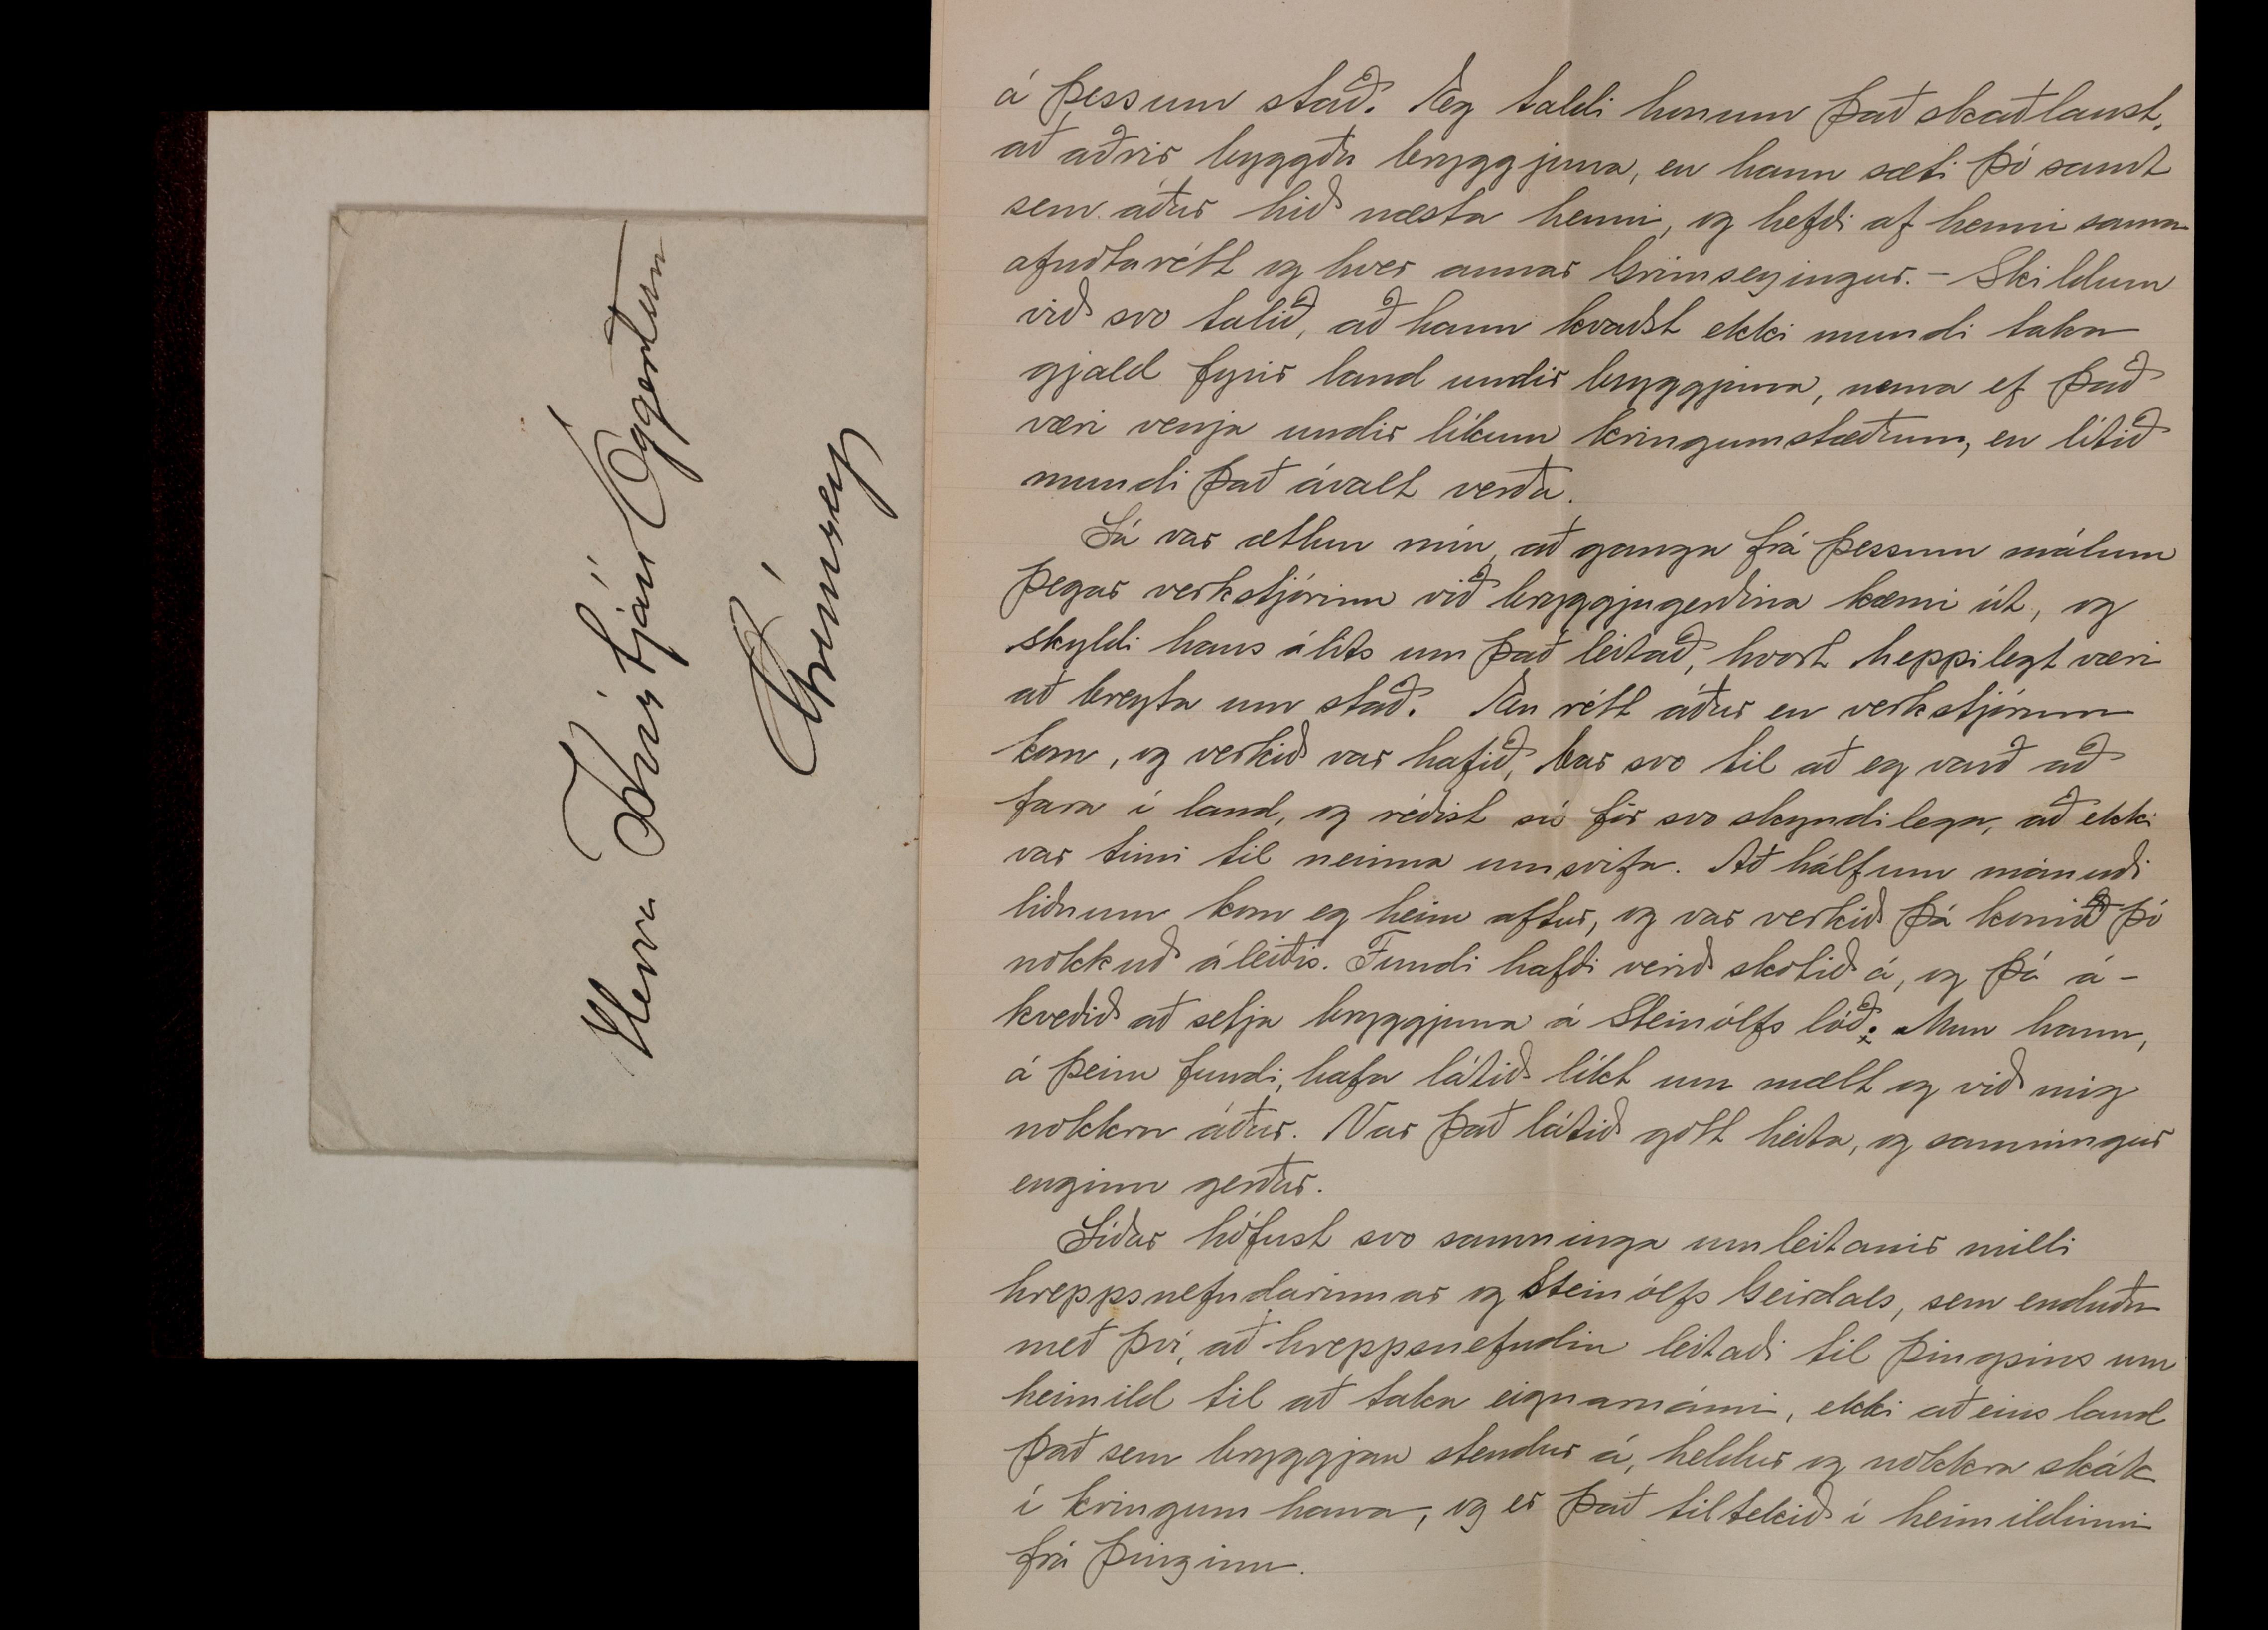 Herra Kristján Eggertsson
Grímsey
á þessum stað. Eg taldi honum það skaðlaust,
að aðrir byggðu bryggjuna, en hann sæti þó samt
sem áður hið næsta henni, og hefði af henni sama
afnotarétt og hver annar Grímseyingur. - Skildum
við svo talið, að hann kvaðst ekki mundi taka
gjald fyrir land undir bryggjuna, nema ef það
væri venja undir líkum kringumstæðum, en lítið
mundi það ávalt verða.
Sú var ætlun mín, að ganga frá þessum málum
þegar verkstjórinn við bryggjugerðina kæmi út, og
skyldi hans álits um það leitað, hvort heppilegt væri
að breyta um stað. En rétt áður en verkstjórinn
kom, og verkið var hafið, bar svo til að eg varð að
fara í land, og réðist sú för svo skyndilega, að ekki
var tími til neinna umsvifa. Að hálfum mánuði
liðnum kom eg heim aftur, og var verkið þá komið þó
nokkuð áleiðis. Fundi hafði verið skotið á, og þá á-
kveðið að setja bryggjuna á Steinólfs lóð. Mun hann,
á þeim fundi, hafa látið líkt um mælt og við mig
nokkru áður. Var það látið gott heita, og samningur
enginn gerður.
Síðar hófust svo samninga umleitanir milli
hreppsnefndarinnar og Steinólfs Geirdals, sem enduðu
með því, að hreppsnefndin leitaði til þingsins um
heimild til að taka eignarnámi, ekki aðeins land
það sem bryggjan stendur á, heldur og nokkra skák
í kringum hana, og er það tiltekið í heimildinni
frá þinginu.